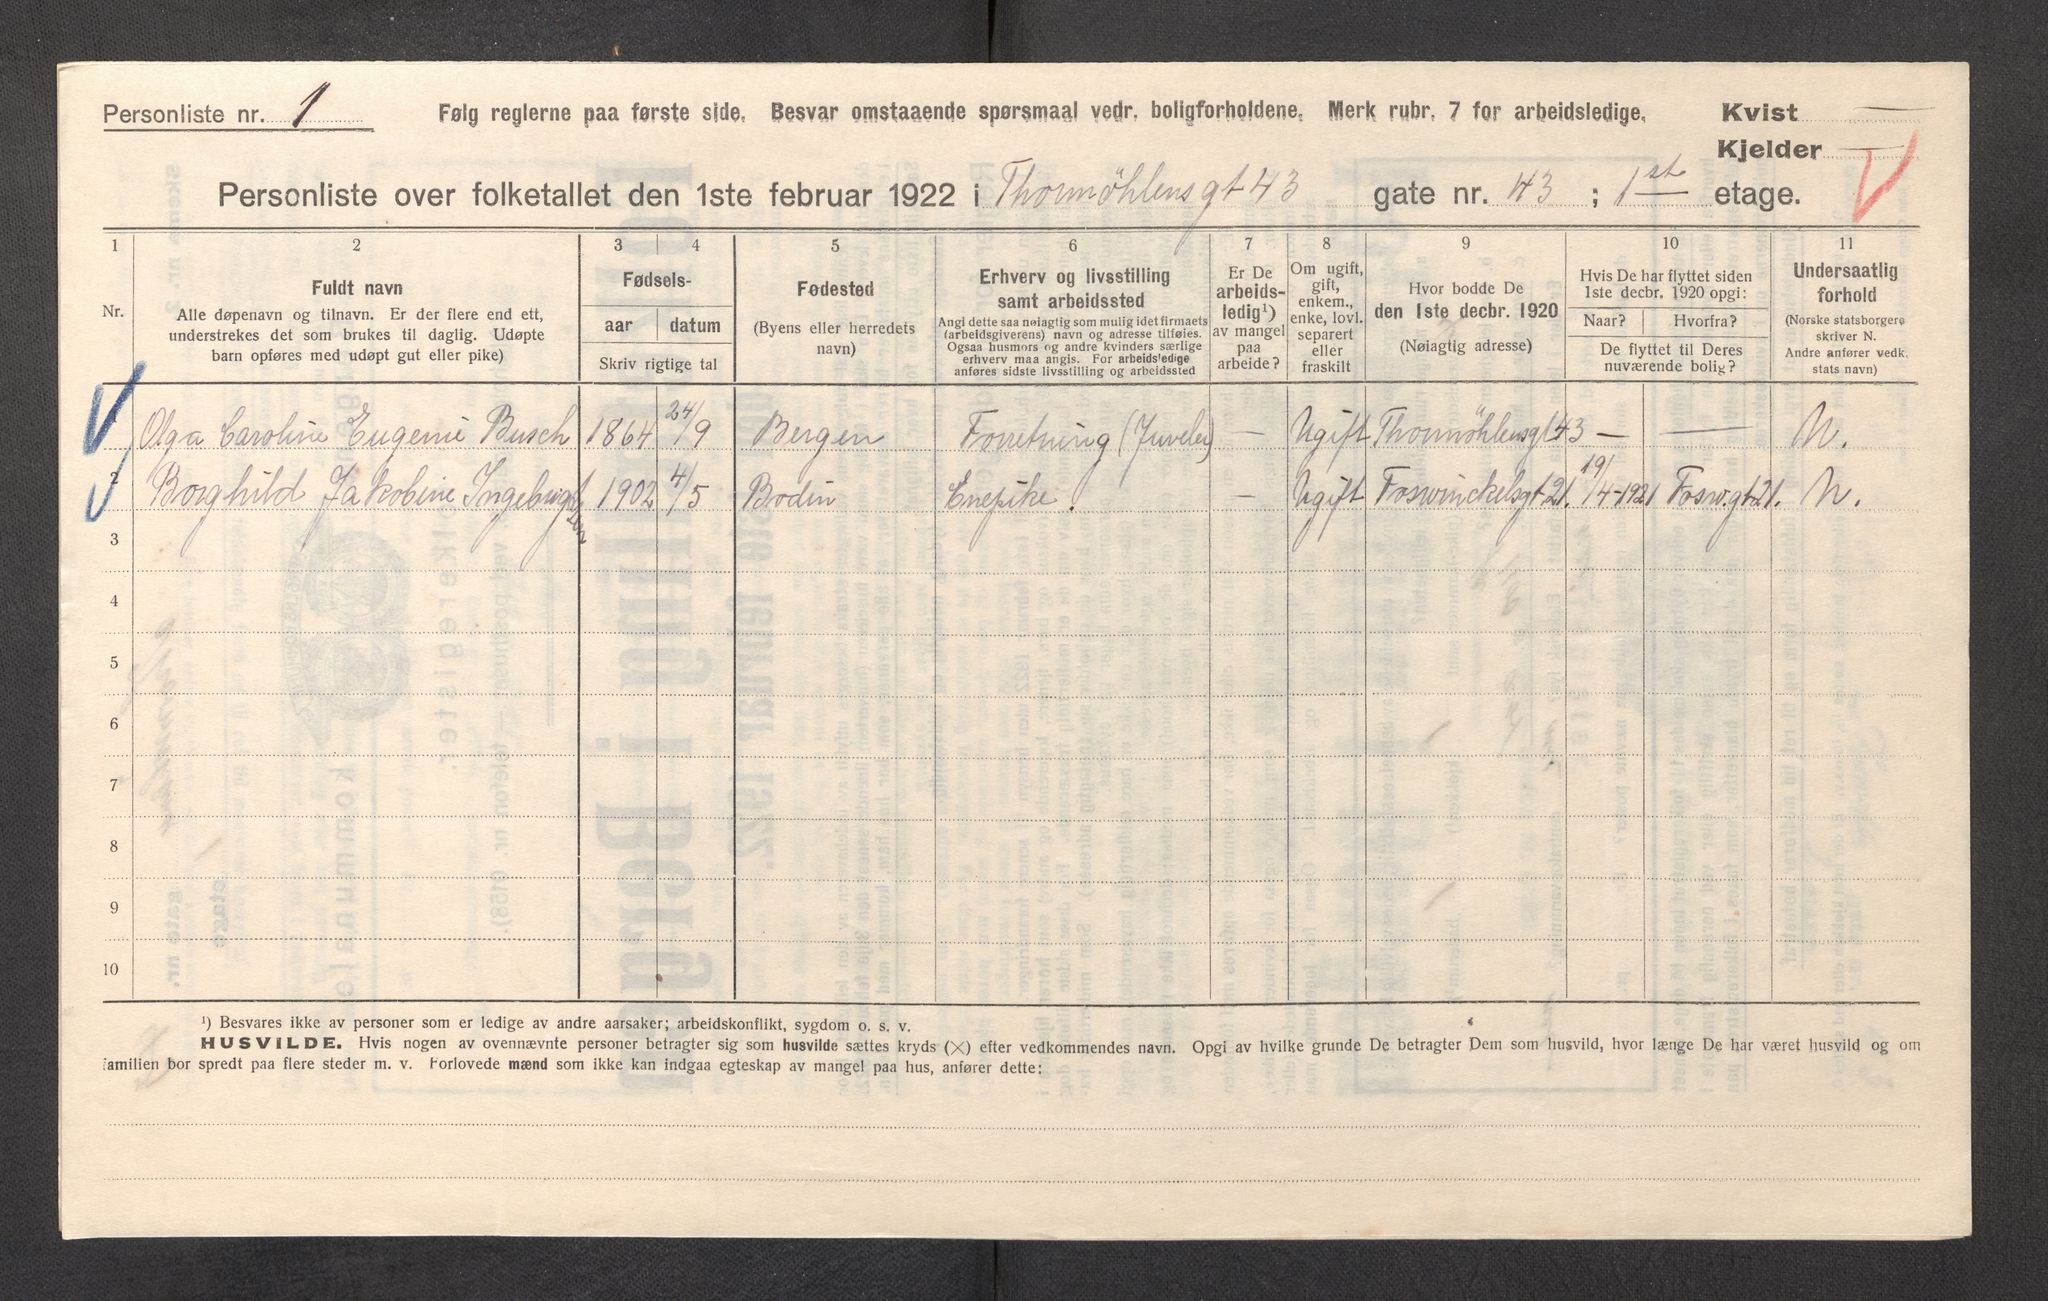 Personliste nr. 1 Følg reglerne paa første side. Besvar omstaaende spørsmaal vedr. boligforholdene. Merk rubr. 7 for arbeidsledige. Kvist —
Kjelder —
Personliste over folketallet den 1ste februar 1922 i Thormøhlensgt 43 gate nr. 43 ; 1st etage.
1 2 3 4 5 6 7 8 9 10 11
Nr.
Fuldt navn
Alle døpenavn og tilnavn. Er der flere end ett,
understrekes det som brukes til daglig. Udøpte
barn opføres med udøpt gut eller pike)
Fødsels-
aar datum
Skriv rigtige tal
Fødested
(Byens eller herredets
navn)
Erhverv og livsstilling
samt arbeidssted
Angi dette saa nøiagtig som mulig idet firmaets
(arbeidsgiverens) navn og adresse tilføies.
Ogsaa husmors og andre kvinders særlige
erhverv maa angis. For arbeidsledige
anføres sidste livsstilling og arbeidssted
Er De
arbeids-
ledig¹)
av mangel
paa
arbeide?
Om ugift,
gift,
enkem.,
enke, lovl.
separert
eller
fraskilt
Hvor bodde De
den 1ste decbr. 1920
(Nøiagtig adresse)
Hvis De har flyttet siden
1ste decbr. 1920 opgi:
Naar? Hvorfra?
De flyttet til Deres
nuværende bolig?
Undersaatlig
forhold
(Norske statsborgere
skriver N.
Andre anfører vedk.
stats navn)
Olga Caroline Eugenie Busch 1864 24/9 Bergen Forretning (Juveler) — Ugift Thormøhlensgt 43 — — N.
2 Borghild Jakobine Ingebrigtsen 1902 4/5 Bodin Enepike. — Ugift Foswinckelsgt 21. 19/4-1921 Fosw.gt 21. N.
3
4
5
6
7
8
9
10
¹) Besvares ikke av personer som er ledige av andre aarsaker; arbeidskonflikt, sygdom o. s. v.
HUSVILDE. Hvis nogen av ovennævnte personer betragter sig som husvilde sættes kryds (×) efter vedkommendes navn. Opgi av hvilke grunde De betragter Dem som husvild, hvor længe De har været husvild og om
familien bor spredt paa flere steder m. v. Forlovede mænd som ikke kan indgaa egteskap av mangel paa hus, anfører dette: